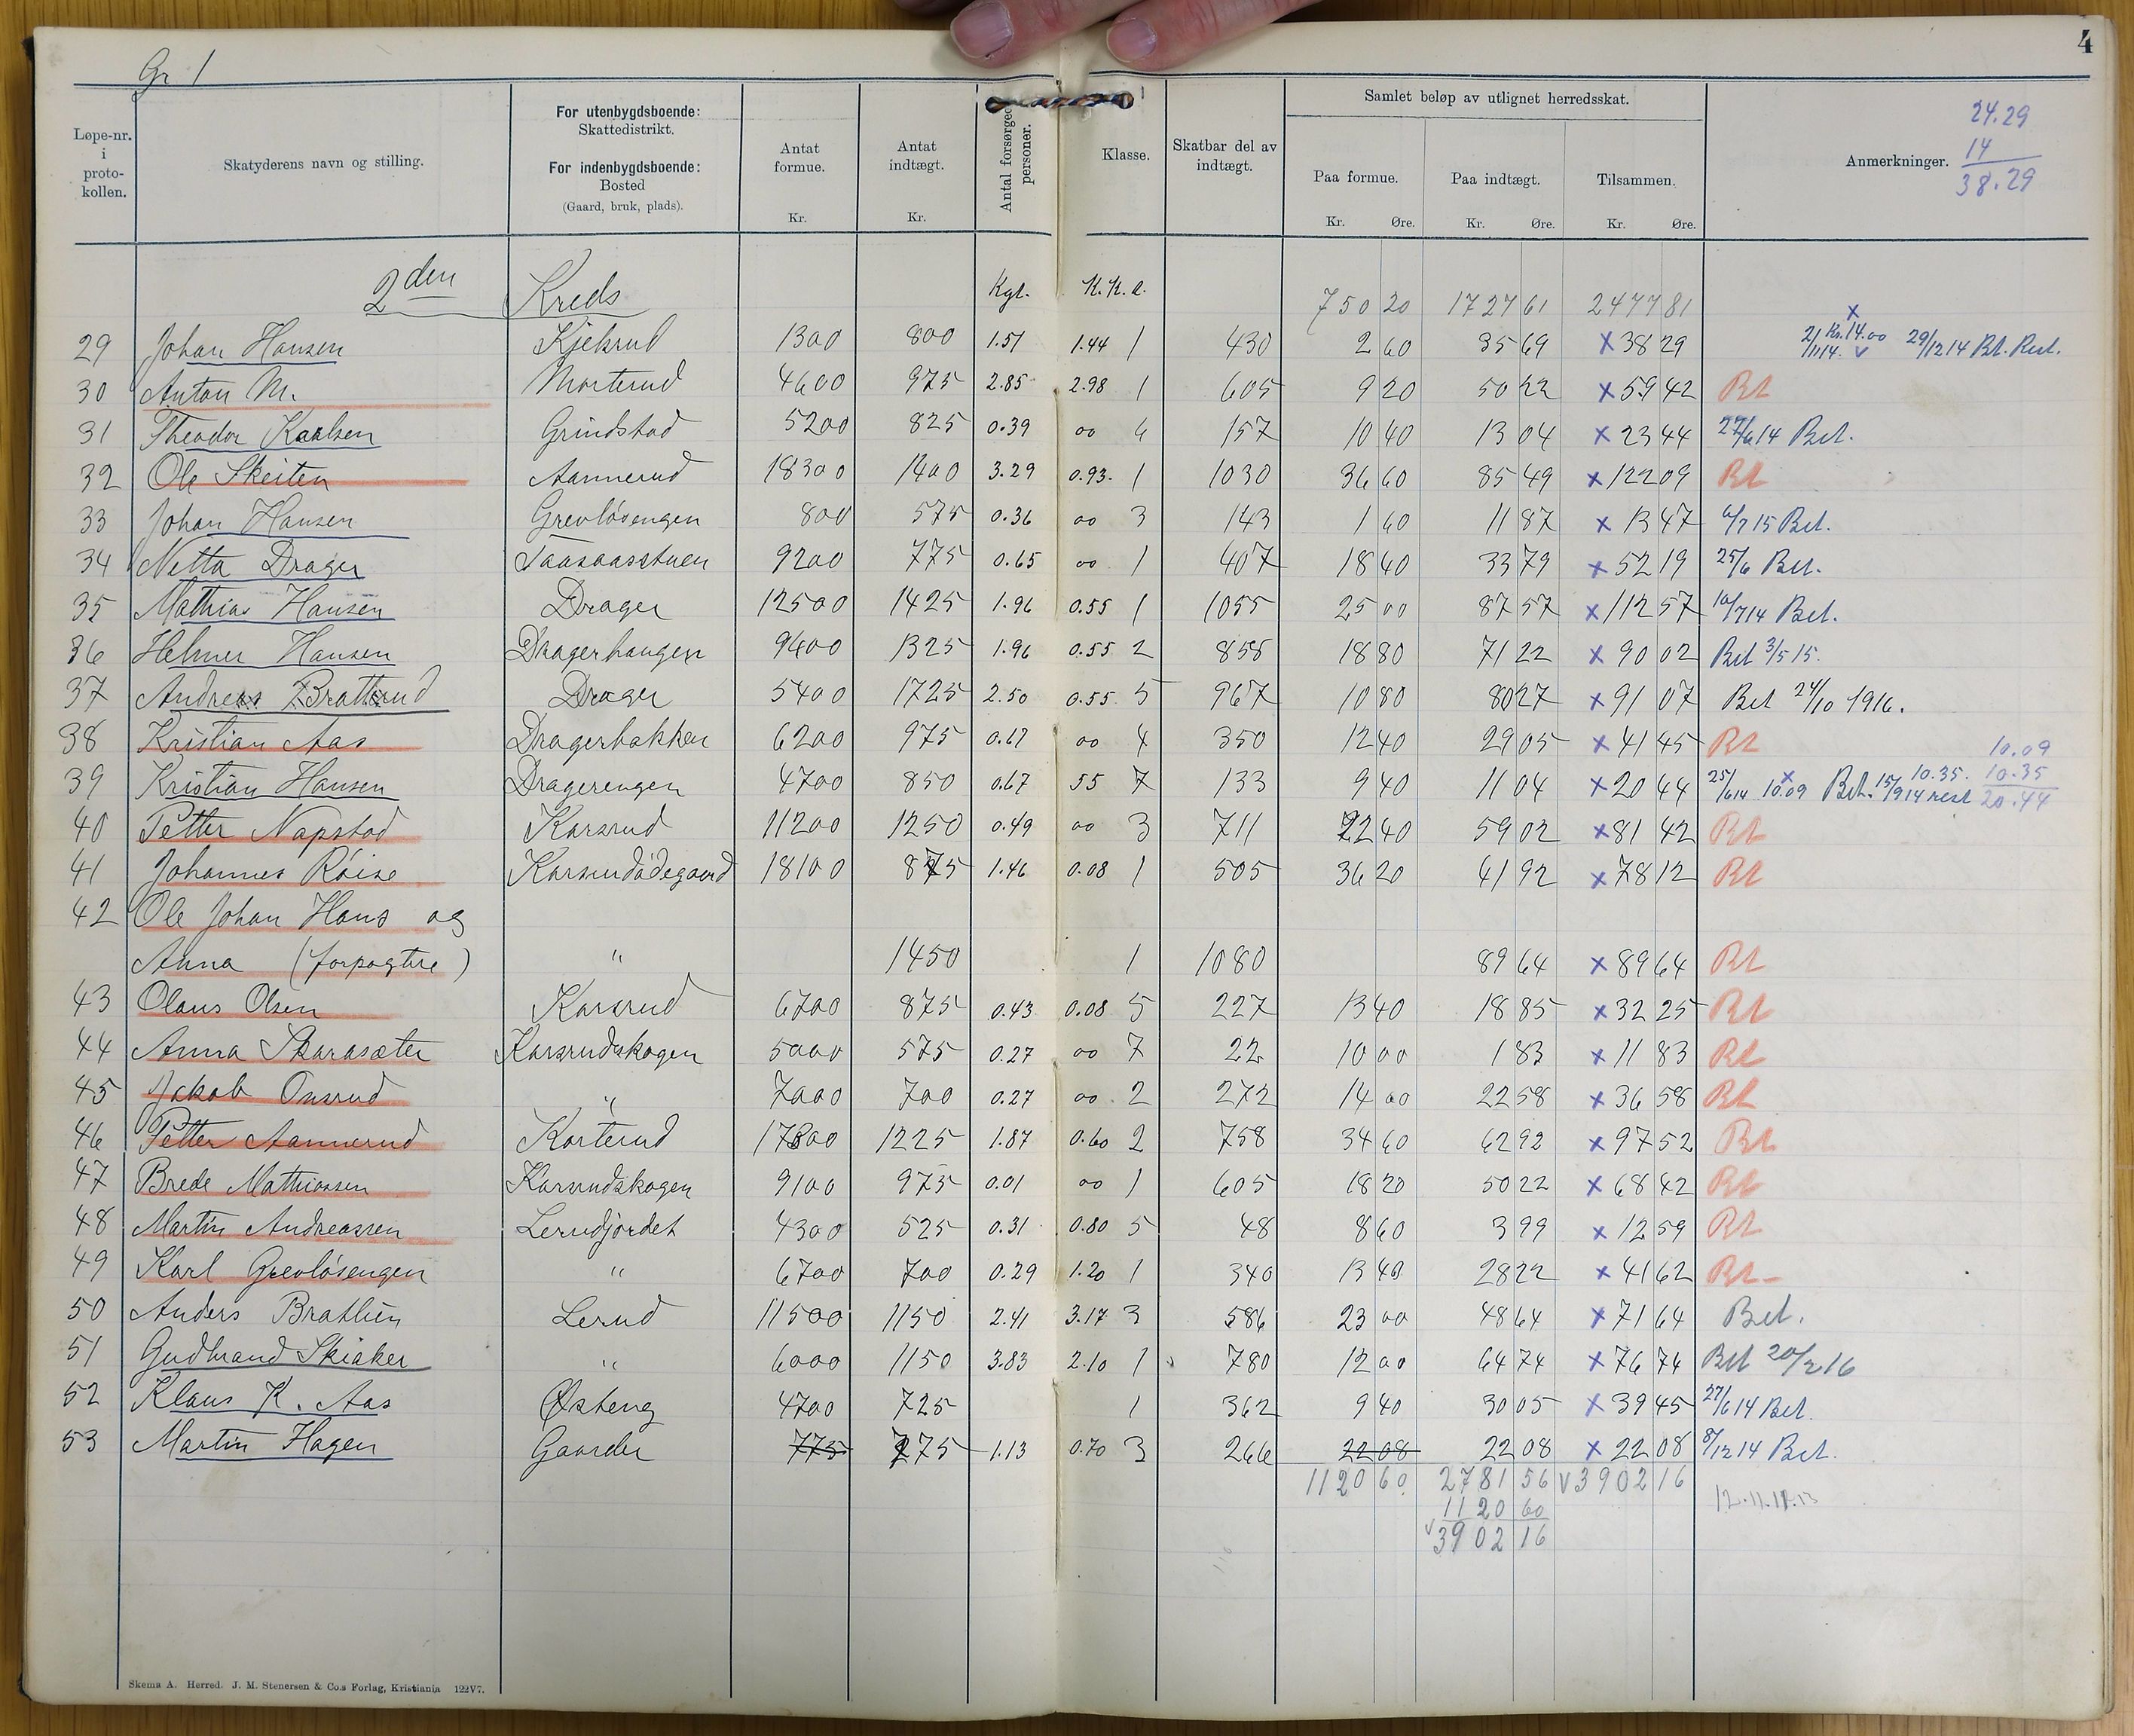 Gr 1
4
Løpe-nr. i proto-kollen.
Skatyderens navn og stilling.
For utenbygdsboende: Skattedistrikt. For indenbygdsboende: Bosted (Gaard, bruk, plads).
Antat formue. Kr.
Antat indtægt. Kr.
Antal forsørgede personer.
Klasse.
Skatbar del av indtægt.
Samlet beløp av utlignet herredsskat.
Paa formue. Kr. Øre.
Paa indtægt. Kr. Øre.
Tilsammen. Kr. Øre.
Anmerkninger.
24.29
14
38.29
2den Kreds Kgl. K.K.a. 750 20 1727 61 2477 81
29 Johan Hansen Kjelsrud 1300 800 1.51 1.44 1 430 2 60 35 69 x 38 29 2/11 14. Kr. 14.00 x v 29/12 14 Bt. Rest.
30 Anton M. Morterud 4600 975 2.85 2.98 1 605 9 20 50 22 x 59 42 Bt
31 Theodor Karlsen Grindstad 5200 825 0.39 00 4 157 10 40 13 04 x 23 44 27/6 14 Bet.
32 Ole Skeiten Aannerud 18300 1400 3.29 0.93. 1 1030 36 60 85 49 x 122 09 Bt
33 Johan Hansen Grevløsengen 800 575 0.36 00 3 143 1 60 11 87 x 13 47 6/2 15 Bet.
34 Netta Drager Taasaasstuen 9200 775 0.65 00 1 407 18 40 33 79 x 52 19 25/6 Bet.
35 Mathias Hansen Drager 12500 1425 1.96 0.55 1 1055 25 00 87 57 x 112 57 10/7 14 Bet.
36 Helmer Hansen Draagerhaugen 9400 1325 1.96 0.55 2 858 18 80 71 22 x 90 02 Bet 3/5 15.
37 Andreas Bratterud Drager 5400 1725 2.50 0.55 5 967 10 80 80 27 x 91 07 Bet 24/10 1916.
38 Kristian Aas Dragerbakken 6200 975 0.67 00 4 350 12 40 29 05 x 41 45 Bt
10.09
39 Kristian Hansen Dragerengen 4700 850 0.67 55 7 133 9 40 11 04 x 20 44 25/6 14 x 10.09 Bet. 15/9 14 rest 10.35. 10.35
20.44
40 Petter Napstad Karsrud 11200 1250 0.49 00 3 711 22 40 59 02 x 81 42 Bt
41 Johannes Röise Karsrudödegaard 18100 875 1.46 0.08 1 505 36 20 41 92 x 78 12 Bt
42 Ole Johan Hans og
Anna (forpagtere) " 1450 1 1080 89 64 x 89 64 Bt
43 Olaus Olsen Karsrud 6700 875 0.43 0.08 5 227 13 40 18 85 x 32 25 Bt
44 Anna Skarasæter Karsrudskogen 5000 575 0.27 00 7 22 10 00 1 83 x 11 83 Bt
45 Jakob Onsrud " 7000 700 0.27 00 2 272 14 00 22 58 x 36 58 Bt
46 Petter Aannerud Korterud 17300 1225 1.87 0.60 2 758 34 60 62 92 x 97 52 Bt
47 Brede Mathiassen Karsrudskogen 9100 975 0.01 00 1 605 18 20 50 22 x 68 42 Bt
48 Martin Andreassen Lerudjordet 4300 525 0.31 0.80 5 48 8 60 3 99 x 12 59 Bt
49 Karl Grevløsengen " 6700 700 0.29 1.20 1 340 13 40 28 22 x 41 62 Bt
50 Anders Brathun Lerud 11500 1150 2.41 3.17 3 586 23 00 48 64 x 71 64 Bet.
51 Gudbrand Skiaker " 6000 1150 3.83 2.10 1 780 12 00 64 74 x 76 74 Bet 20/2 16
52 Klaus K. Aas Østeng 4700 725 1 362 9 40 30 05 x 39 45 27/6 14 Bet.
53 Martin Hagen Gaarder 775 775 1.13 0.70 3 266 22 08 22 08 x 22 08 8/12 14 Bet.
1120 60 2781 56 v 3902 16
1120 60
v 3902 16
12.11.11.13
Skema A. Herred. J. M. Stenersen & Co.s Forlag, Kristiania 122V7.